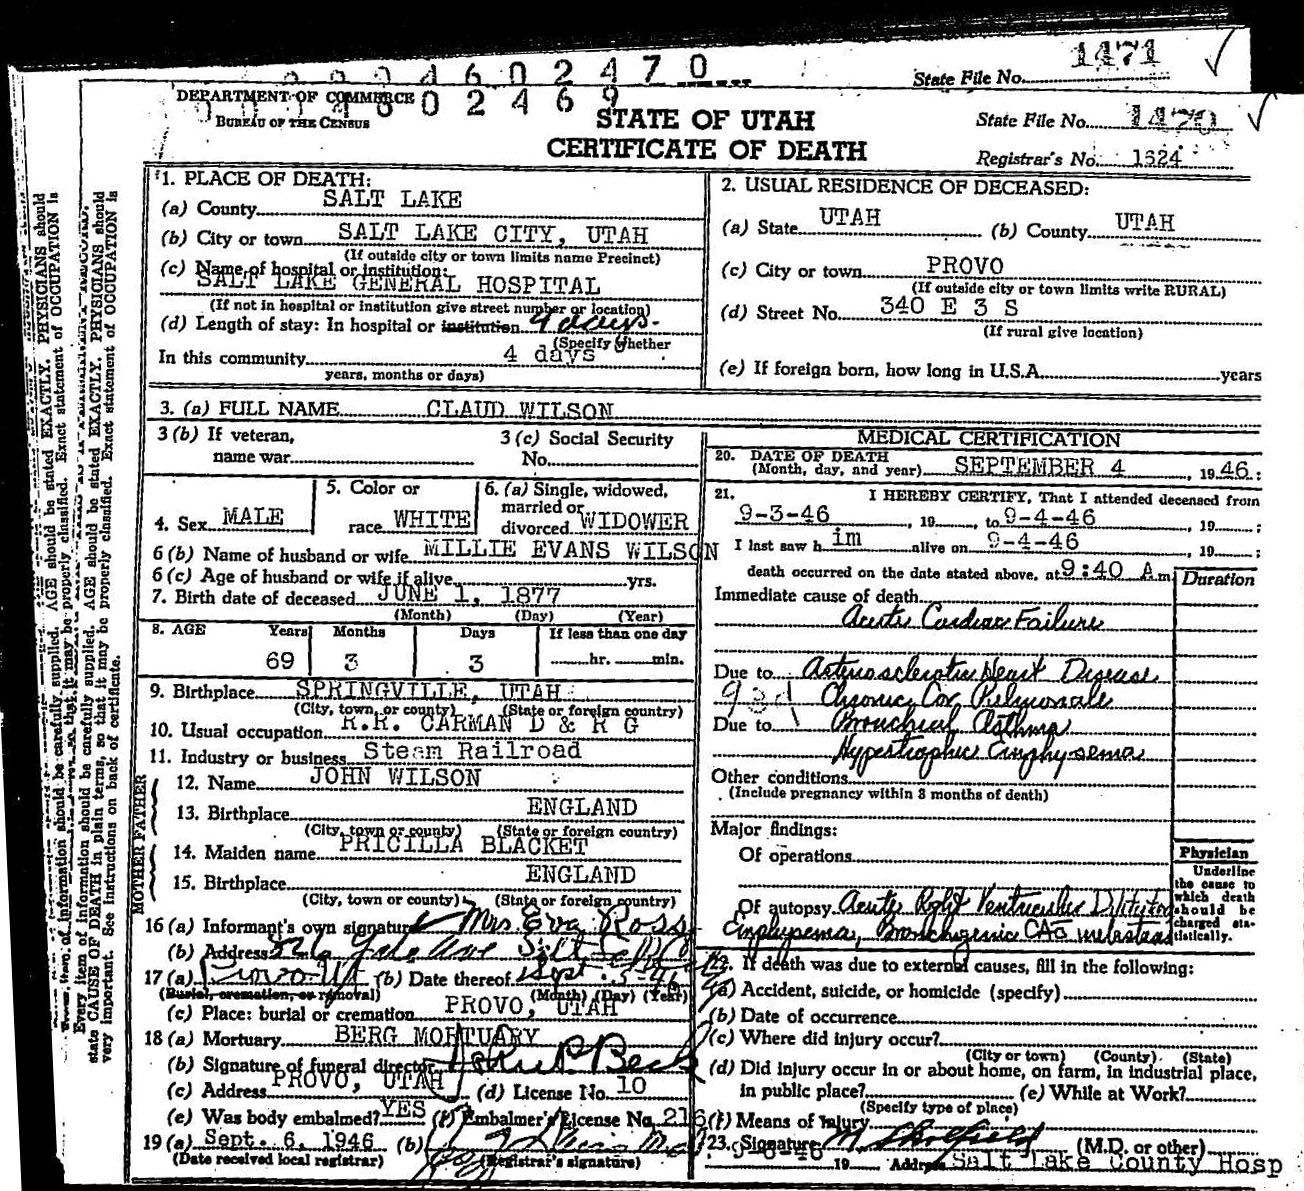 1471
State File No.
602470
DEPARTMENT OF COMMERCE
02469
BUREAU OF THE CENSUS
STATE OF UTAH
CERTIFICATE OF DEATH
State File No. 1470
Registrar's No. 1624
1. PLACE OF DEATH:
(a) County SALT LAKE
(b) City or town SALT LAKE CITY, UTAH
(If outside city or town limits name Precinct)
(c) Name of hospital or institution:
SALT LAKE GENERAL HOSPITAL
(If not in hospital or institution give street number or location)
(d) Length of stay: In hospital or institution 4 days.
(Specify whether
In this community 4 days
years, months or days)
2. USUAL RESIDENCE OF DECEASED:
(a) State UTAH (b) County UTAH
(c) City or town PROVO
(If outside city or town limits write RURAL)
(d) Street No. 340 E 3 S
(If rural give location)
(e) If foreign born, how long in U.S.A. years
3. (a) FULL NAME CLAUD WILSON
3 (b) If veteran, name war
3 (c) Social Security No.
4. Sex MALE
5. Color or race WHITE
6. (a) Single, widowed, married or divorced WIDOWER
6 (b) Name of husband or wife MILLIE EVANS WILSON
6 (c) Age of husband or wife if alive yrs.
7. Birth date of deceased JUNE 1, 1877
(Month) (Day) (Year)
8. AGE Years Months Days If less than one day
69 3 3 hr. min.
9. Birthplace SPRINGVILLE, UTAH
(City, town, or county) (State or foreign country)
10. Usual occupation R.R. CARMAN D & R G
11. Industry or business Steam Railroad
FATHER
12. Name JOHN WILSON
13. Birthplace ENGLAND
(City, town or county) (State or foreign country)
MOTHER
14. Maiden name PRICILLA BLACKET
15. Birthplace ENGLAND
(City, town or county) (State or foreign country)
16 (a) Informant's own signature Mrs. Eva Ross
(b) Address Yale Ave Salt
17 (a) Provo Ut (b) Date thereof Sept. 46
(Burial, cremation, or removal) (Month) (Day) (Year)
(c) Place: burial or cremation PROVO, UTAH
18 (a) Mortuary BERG MORTUARY
(b) Signature of funeral director
(c) Address PROVO, UTAH (d) License No. 10
(e) Was body embalmed? YES (f) Embalmer's License No. 216
19 (a) Sept. 6, 1946 (b)
(Date received local registrar) (Registrar's signature)
MEDICAL CERTIFICATION
20. DATE OF DEATH
(Month, day, and year) SEPTEMBER 4, 1946:
21. I HEREBY CERTIFY, That I attended deceased from
9-3-46, 19 , to 9-4-46, 19 ;
I last saw him alive on 9-4-46, 19 ;
death occurred on the date stated above, at 9:40 A m
Duration
Immediate cause of death
Acute Cardiac Failure
Due to Arteriosclerotic Heart Disease
93d Chronic Cor Pulmonale
Due to Bronchial Asthma
Hypertrophic Emphysema
Other conditions
(Include pregnancy within 3 months of death)
Major findings:
Of operations
Physician
Underline the cause to which death should be charged statistically.
Of autopsy Acute Right Ventricular
Emphysema, Bronchogenic
22. If death was due to external causes, fill in the following:
(a) Accident, suicide, or homicide (specify)
(b) Date of occurrence
(c) Where did injury occur?
(City or town) (County) (State)
(d) Did injury occur in or about home, on farm, in industrial place,
in public place? (e) While at Work?
(Specify type of place)
(f) Means of Injury
23. Signature (M.D. or other)
19 Address Salt Lake County Hosp
Every item of information should be carefully supplied. AGE should be stated EXACTLY. PHYSICIANS should
state CAUSE OF DEATH in plain terms, so that it may be properly classified. Exact statement of OCCUPATION is
very important. See instructions on back of certificate.